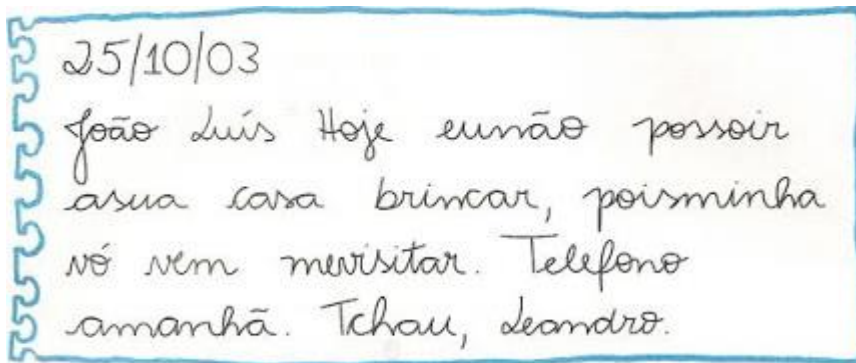 25/10/03
João Luís Hoje eunão possoir
asua casa brincar, poisminha
vó vem mevisitar. Telefono
amanhã. Tchau, Leandro.